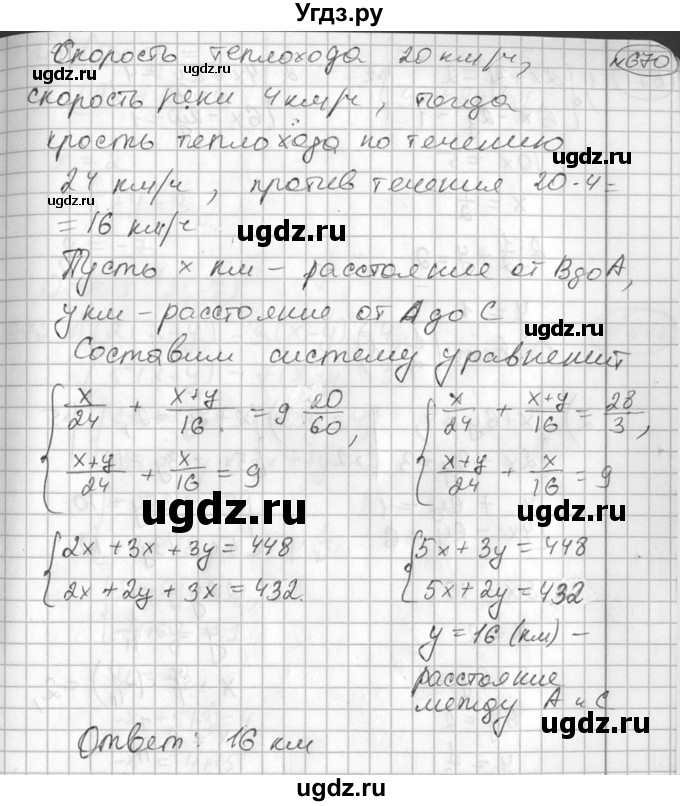 Угдз.ру
Скорость теплохода 20 км/ч, №670
скорость реки 4 км/ч, тогда
крость теплохода по течению
24 км/ч, против течения 20-4=
= 16 км/ч
Пусть x км - расстояние от В до А,
y км - расстояние от А до С
Составим систему уравнений
{ x/24 + (x+y)/16 = 9 20/60, { x/24 + (x+y)/16 = 28/3,
(x+y)/24 + x/16 = 9 (x+y)/24 + x/16 = 9
{ 2x + 3x + 3y = 448 { 5x + 3y = 448
2x + 2y + 3x = 432. 5x + 2y = 432
y = 16 (км) -
расстояние
между А и С
Ответ: 16 км
ugdz.ru
ugdz.ru
ugdz.ru
ugdz.ru
ugdz.ru
ugdz.ru
ugdz.ru
ugdz.ru
ugdz.ru
ugdz.ru
ugdz.ru